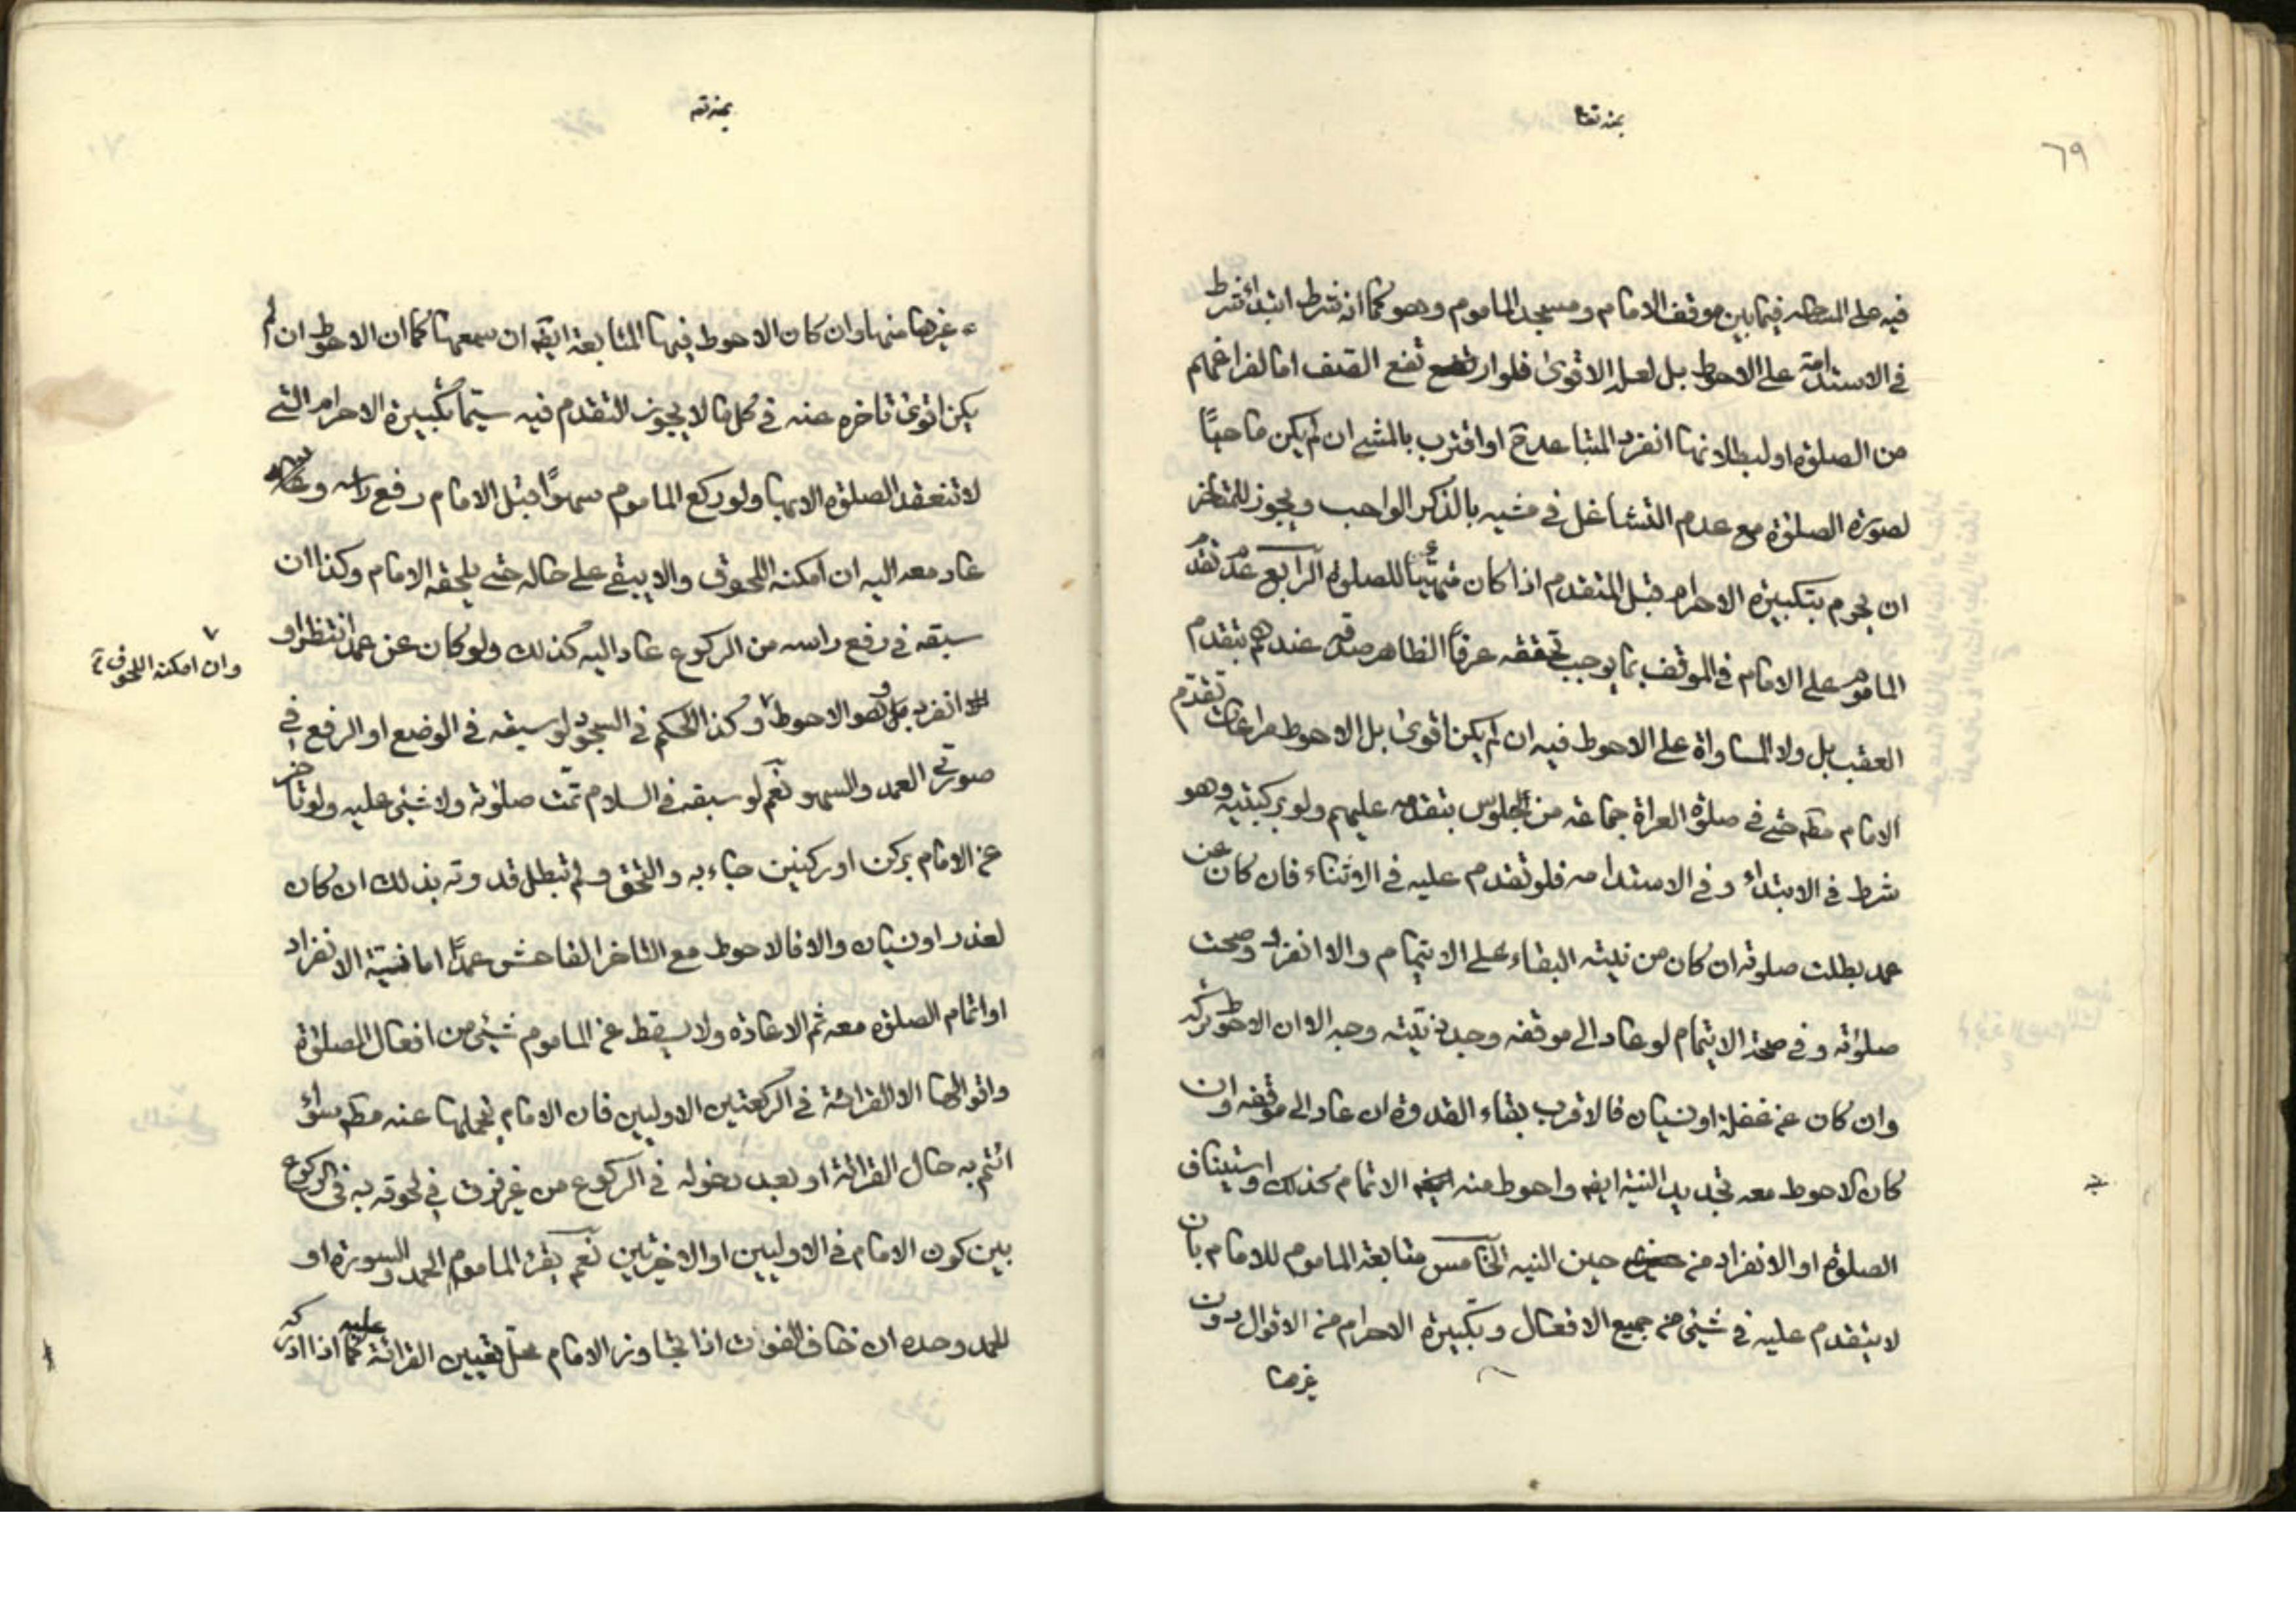 ٦٩
بمنه تعا
فيه على المساحة فيما بين موقف الامام ومسجد الماموم وهو كما انه شرط ابتداء شرط
في الاستدامة على الاحوط بل لعله الاقوى فلو ارتفع نفع الصف اما لفراغهم
من الصلوة او لبطلانها انفرد المتباعد ح او اقترب بالمشي ان لم يكن ماحيًا
لصورة الصلوة مع عدم التشاغل في مشيه بالذكر الواجب ويجوز للمتاخر
ان يحرم بتكبيرة الاحرام قبل المتقدم اذا كان متهيئًا للصلوة الرابع عدم تقدم
الماموم على الامام في الموقف بما يوجب تحققه عرفًا الظاهر صدقه عندهم بتقدم
العقب بل ولا المساواة على الاحوط فيه ان لم يكن اقوى بل الاحوط مراعات تقدم
الامام مطم حتى في صلوة العراة جماعة من الجلوس بتقدمه عليهم ولو بركبتيه وهو
شرط في الابتداء وفي الاستدامه فلو تقدم عليه في الاثناء فان كان عن
عمد بطلت صلوته ان كان من نيته البقاء على الايتمام والا انفرد وصحت
صلوته وفي صحة الايتمام لو عاد الى موقفه وجدد نيته وجه الا ان الاحوط تركه
وان كان عن غفلة او نسيان فالاقرب بقاء القدوة ان عاد الى موقفه وان
كان الاحوط معه تجديد النية ايضه واحوط منه الاتمام كذلك واستيناف
الصلوة او الانفراد من حين النيه الخامس متابعة الماموم للامام بان
لا يتقدم عليه في شيئ من جميع الافعال وتكبيرة الاحرام من الاقوال دون
غيرها
بمنه ته
غيرها منها وان كان الاحوط فيها المتابعة ايضه ان سمعها كما ان الاحوط ان لم
يكن اقوى تاخره عنه في كل ما لا يجوز التقدم فيه سيّما تكبيرة الاحرام التي
لا تنعقد الصلوة الا بها ولو ركع الماموم سهوًا قبل الامام رفع راسه و
عاد معه اليه ان امكنه اللحوق والا يبقى على حاله حتى يلحقه الامام وكذا ان
سبقه في رفع راسه من الركوع عاد اليه كذلك ولو كان عن عمد انتظر او
انفرد بل وهو الاحوط وكذا الحكم في السجود لو سبقه في الوضع او الرفع في
وان امكنه اللحوق
صورتي العمد والسهو نعم لو سبقه في السلام تمّت صلوته ولا شيئ عليه ولو تاخر
عن الامام بركن او ركنين جاء به والتحق ولم تبطل قدوته بذلك ان كان
لعذر او نسيان والا فالاحوط مع التاخر الفاحش عمدًا اما نية الانفراد
او اتمام الصلوة معه ثم الاعادة ولا يسقط عن الماموم شيئ من افعال الصلوة
واقوالها الا القرائة في الركعتين الاوليين فان الامام يتحملها عنه مطم سواء
ائتم به حال القرائة او بعد دخوله في الركوع من غير فرق في لحوقه به في الركوع
بين كون الامام في الاوليين او الاخيرتين نعم يقرء الماموم الحمد والسورة او
للحمد وحده ان خاف الفوات اذا تجاوز الامام محل تعيين القرائة عليه كما اذا ادركه